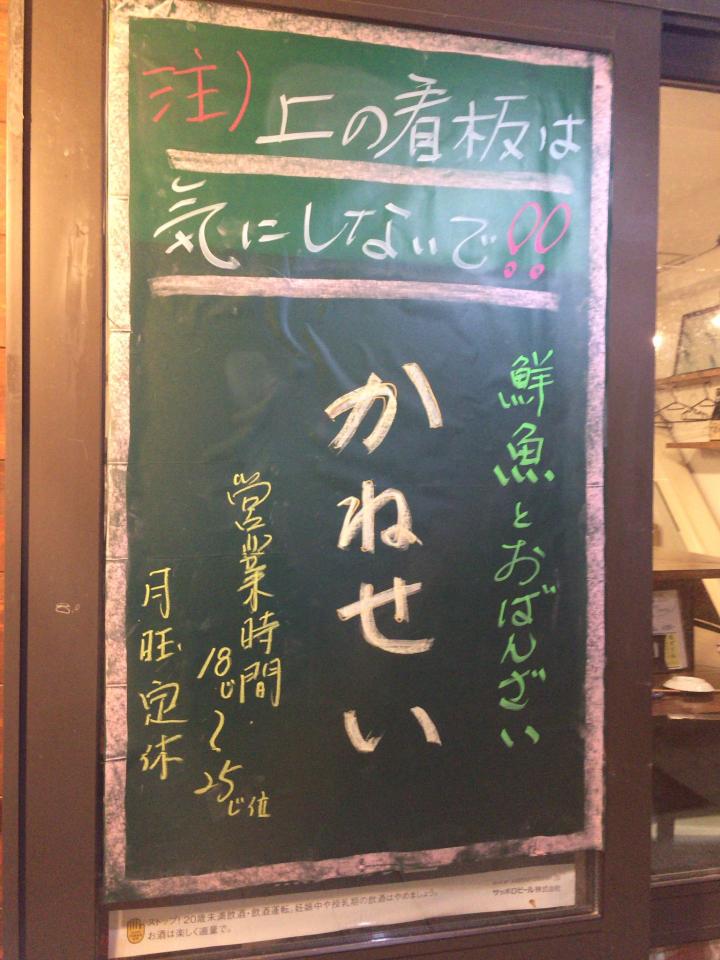 注)上の看板は
気にしないで!!
鮮魚とおばんざい
かねせい
営業時間
18じ〜25じ位
月曜定休
サッポロビール株式会社
ストップ!20歳未満飲酒・飲酒運転。妊娠中や授乳期の飲酒はやめましょう。
お酒は楽しく適量で。